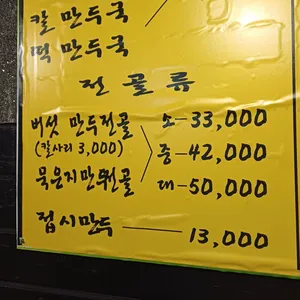 칼 만두국
떡 만두국
전 골 류
버섯 만두전골 소-33,000
(칼사리 3,000) 중-42,000
묵은지만두전골 대-50,000
접시만두 13,000